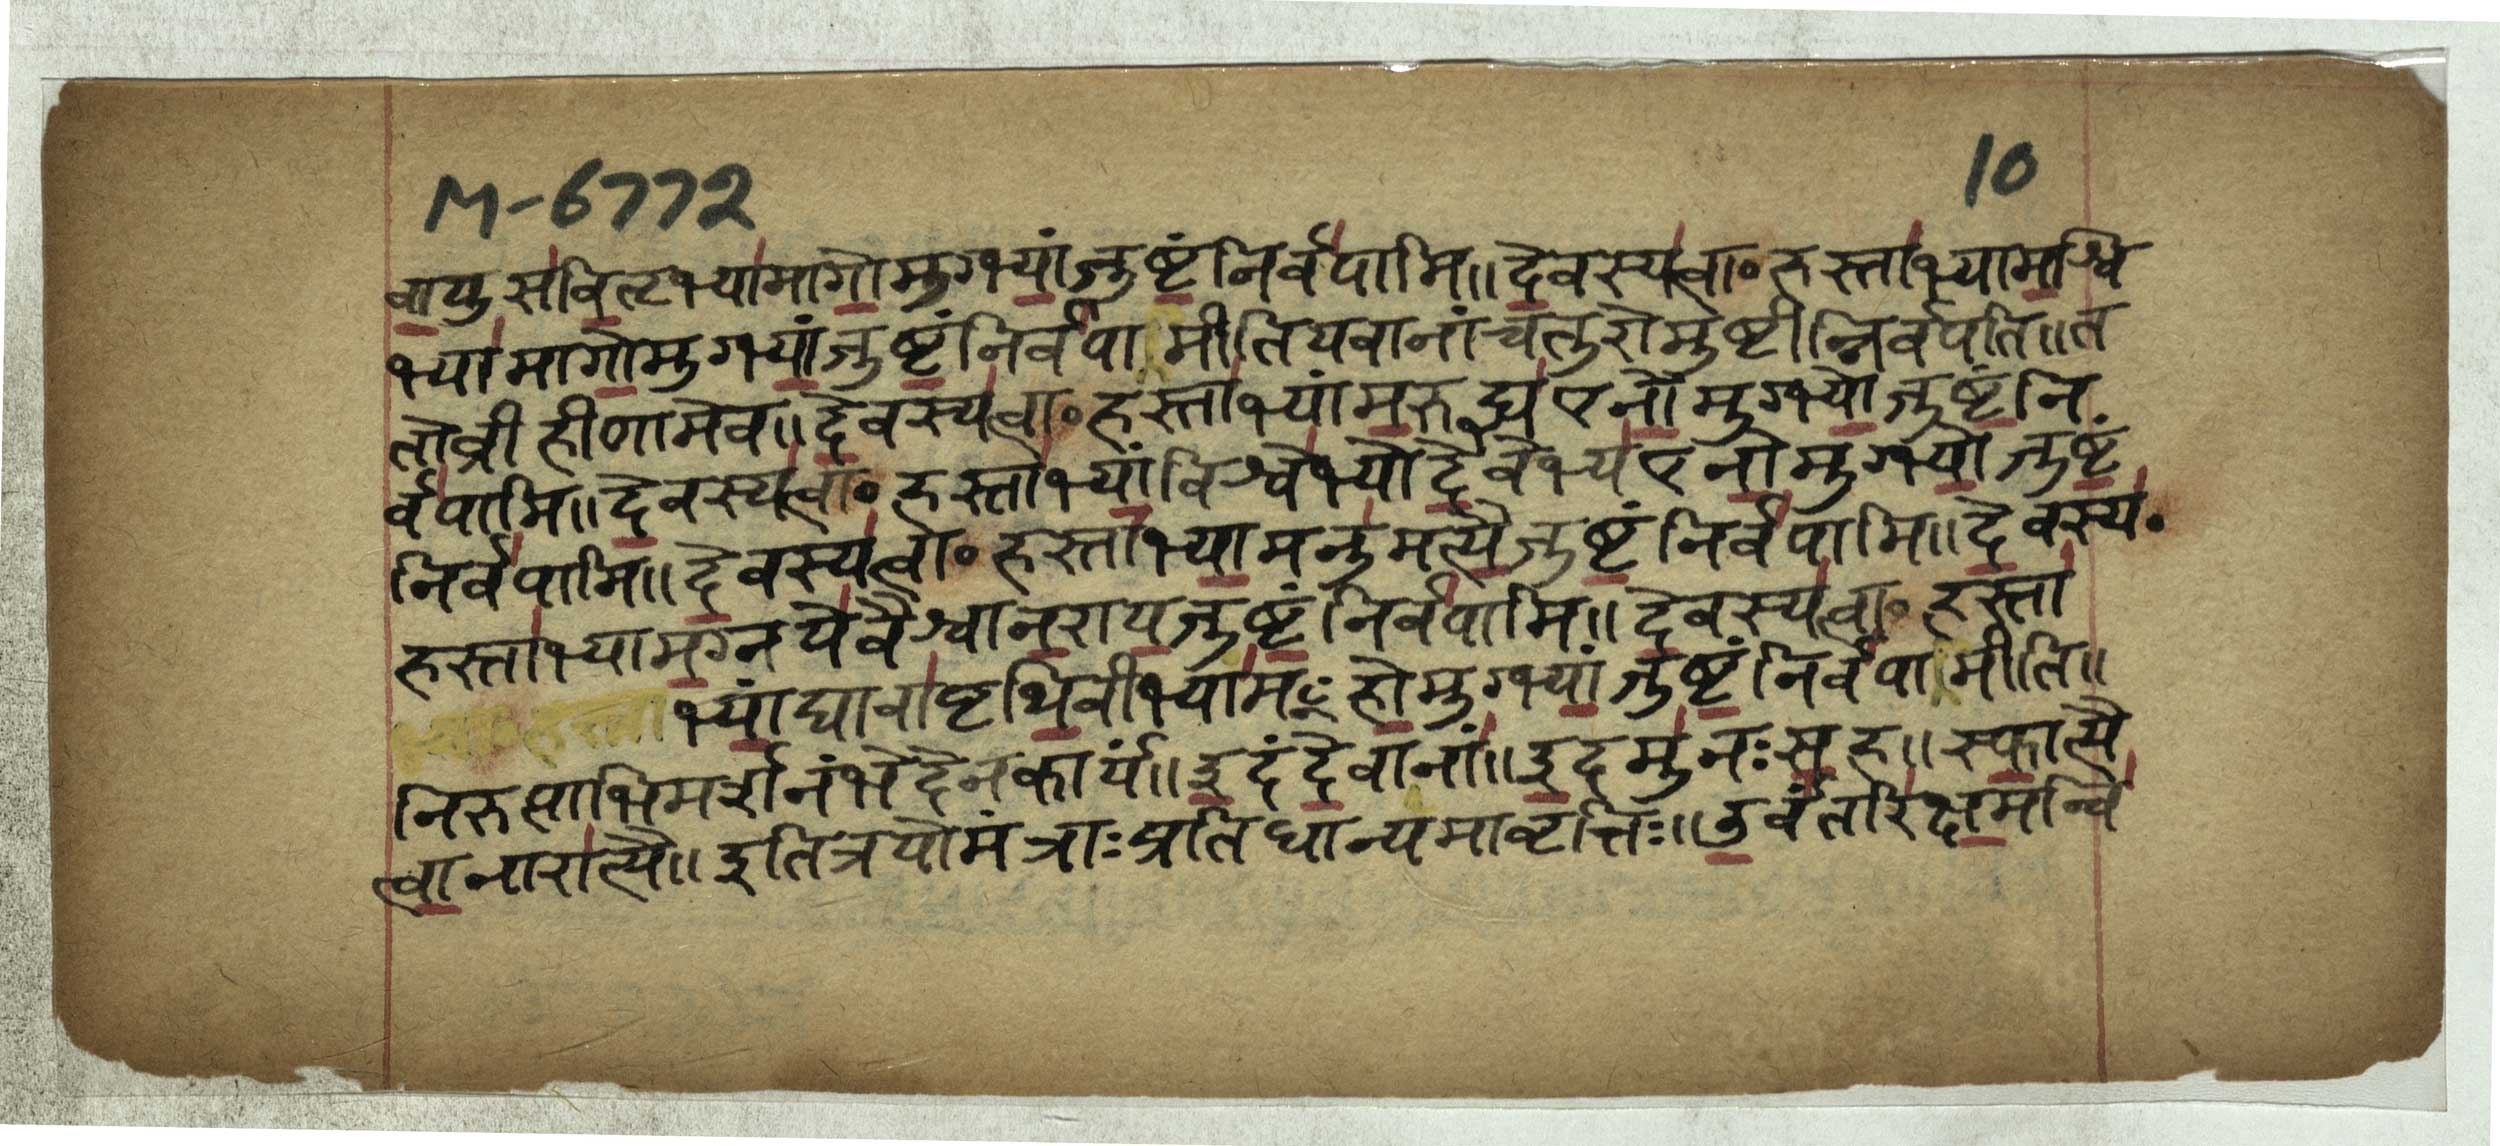 M-6772 10
वायुसवितृभ्यामागोमुग्भ्यांजुष्टंनिर्वपामि॥देवस्यत्वा॰हस्ताभ्यामश्वि
भ्यामागोमुग्भ्यांजुष्टंनिर्वपामीतियवानांचतुरोमुष्टीन्निर्वपति॥त
तोव्रीहीणामेव॥देवस्यत्वा॰हस्ताभ्यांमरुद्भ्यएनोमुग्भ्योजुष्टंनि
र्वपामि॥देवस्यत्वा॰हस्ताभ्यांविश्वेभ्योदेवेभ्यएनोमुग्भ्योजुष्टं
निर्वपामि॥देवस्यत्वा॰हस्ताभ्यामनुमत्यैजुष्टंनिर्वपामि॥देवस्य॰
हस्ताभ्यामग्नयेवैश्वानरायजुष्टंनिर्वपामि॥देवस्यत्वा॰हस्ता
भ्यांद्यावापृथिवीभ्यामꣳहोमुग्भ्यांजुष्टंनिर्वपामीति॥
निरुप्ताभिमर्शनंभेदेनकार्यं॥इदंदेवानां॥इदमुनःसह॥स्फात्यै
त्वानारात्यै॥इतित्रयोमंत्राःप्रतिधान्यमावृत्तिः॥उर्वंतरिक्षमन्वि